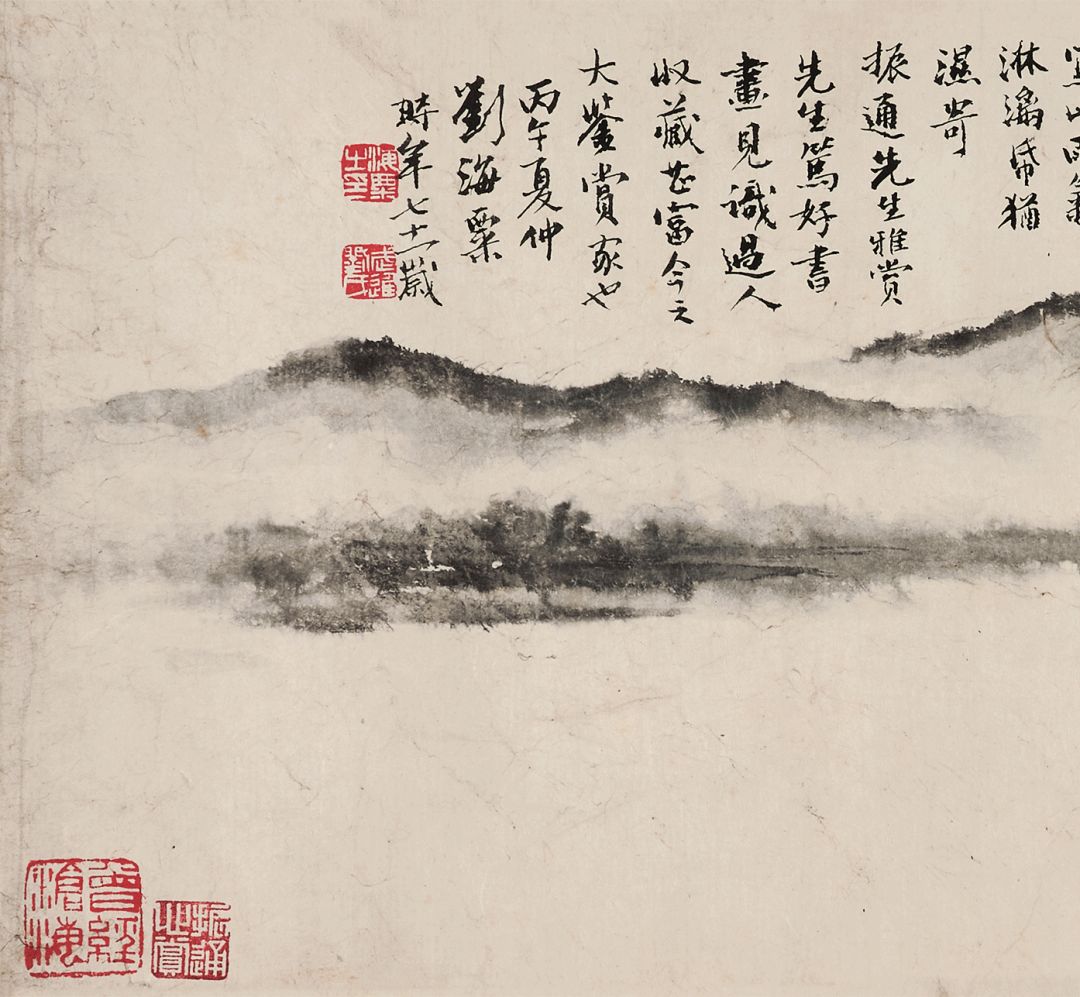 淋漓帋猶
濕
振通先生雅賞
先生篤好書
畫見識過人
收藏甚富今之
大鑒賞家也
丙午夏仲
劉海粟
時年七十一歲
海粟之印
武進
曾經滄海
振通